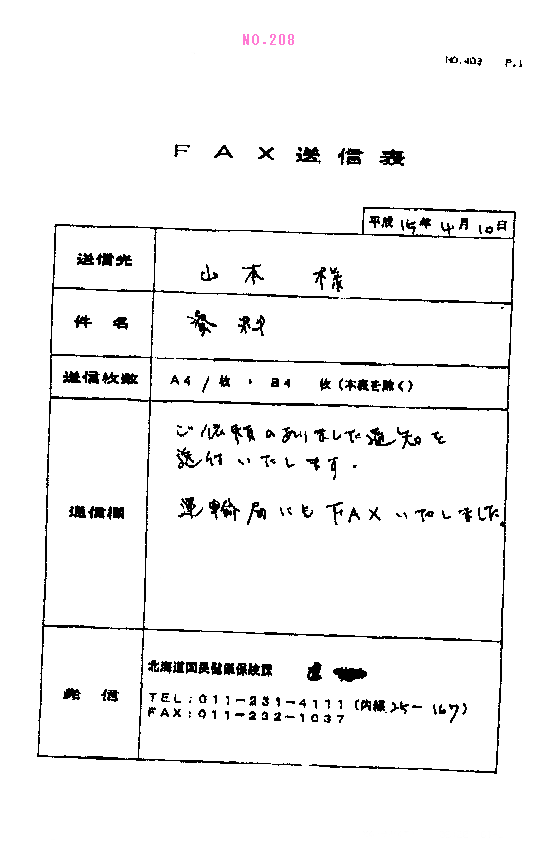 NO.208
NO.403 P.1
FAX送信表
平成15年4月10日
送信先
山本 様
件名
資料
送信枚数
A4 1枚・B4 枚(本表を除く)
送信欄
ご依頼のありました通知を
送付いたします.
運輸局にも下FAXいたしました.
発信
北海道国民健康保険課
TEL:011-231-4111(内線25-167)
FAX:011-232-1037